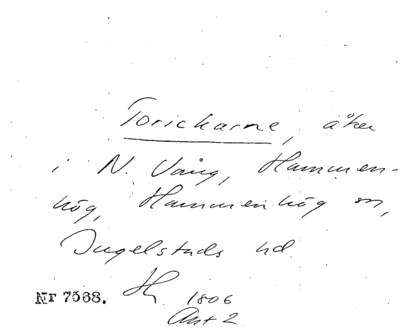 Torickarne, åker
i N. Vång, Hammen-
hög, Hammenhög sn,
Ingelstads hd
Nr 7568. H 1806
Akt 2